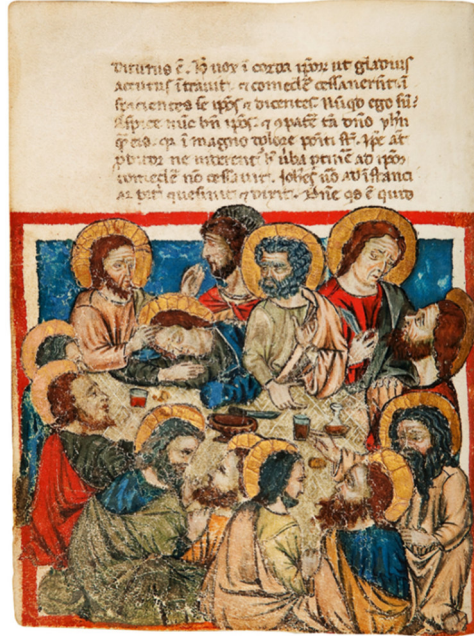 diturus ē. H̄ uox ī corda ip̄oꝝ ut gladius
acutus ītrauit. ⁊ comedeē cessauerūt. ī
spicientes se ip̄os ⁊ dicentes. Nūqd ego sū?
Aspice nūc bn̄ ip̄os. ⁊ ꝯpatē tā dn̄o
q̄ eis. qꝛ ī magno dolore poīti st̄. Ip̄e āt
ꝓditor ne h̄ uba ptinē ad ip̄oꝝ
comedeē nō cessauit. Ioh̄es ū̄o ad īstanci
quesiuit ⁊ dixit. Dn̄e qs ē